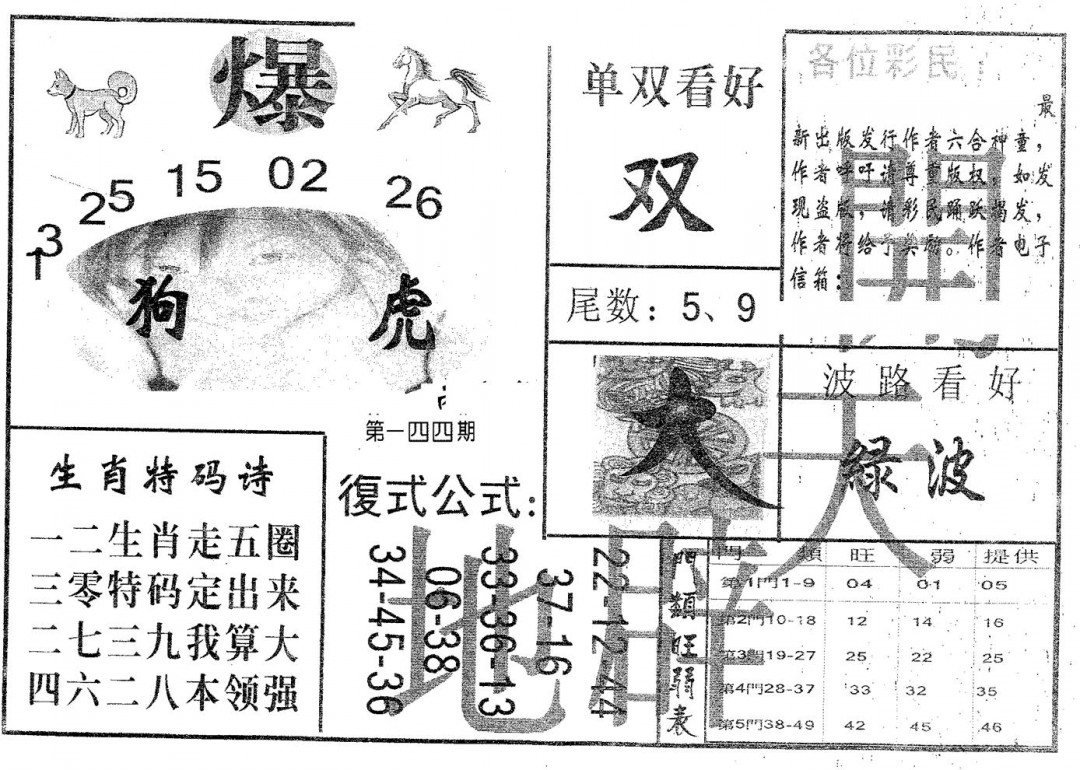 爆
13
25
15
02
26
狗
虎
第一四四期
生肖特码诗
一二生肖走五圈
三零特码定出来
二七三九我算大
四六二八本领强
復式公式:
34-45-36
06-38
33-36-13
37-16
22-12-44
单双看好
双
尾数：5、9
大
各位彩民：
最
新出版发行作者六合神童，
作者呼吁请尊重版权，如发
现盗版，请彩民踊跃揭发，
作者将给予奖励。作者电子
信箱：
波路看好
緑波
開
天
地
旺
門類旺弱表
門類 旺 弱 提供
第1門1-9 04 01 05
第2門10-18 12 14 16
第3門19-27 25 22 25
第4門28-37 33 32 35
第5門38-49 42 45 46